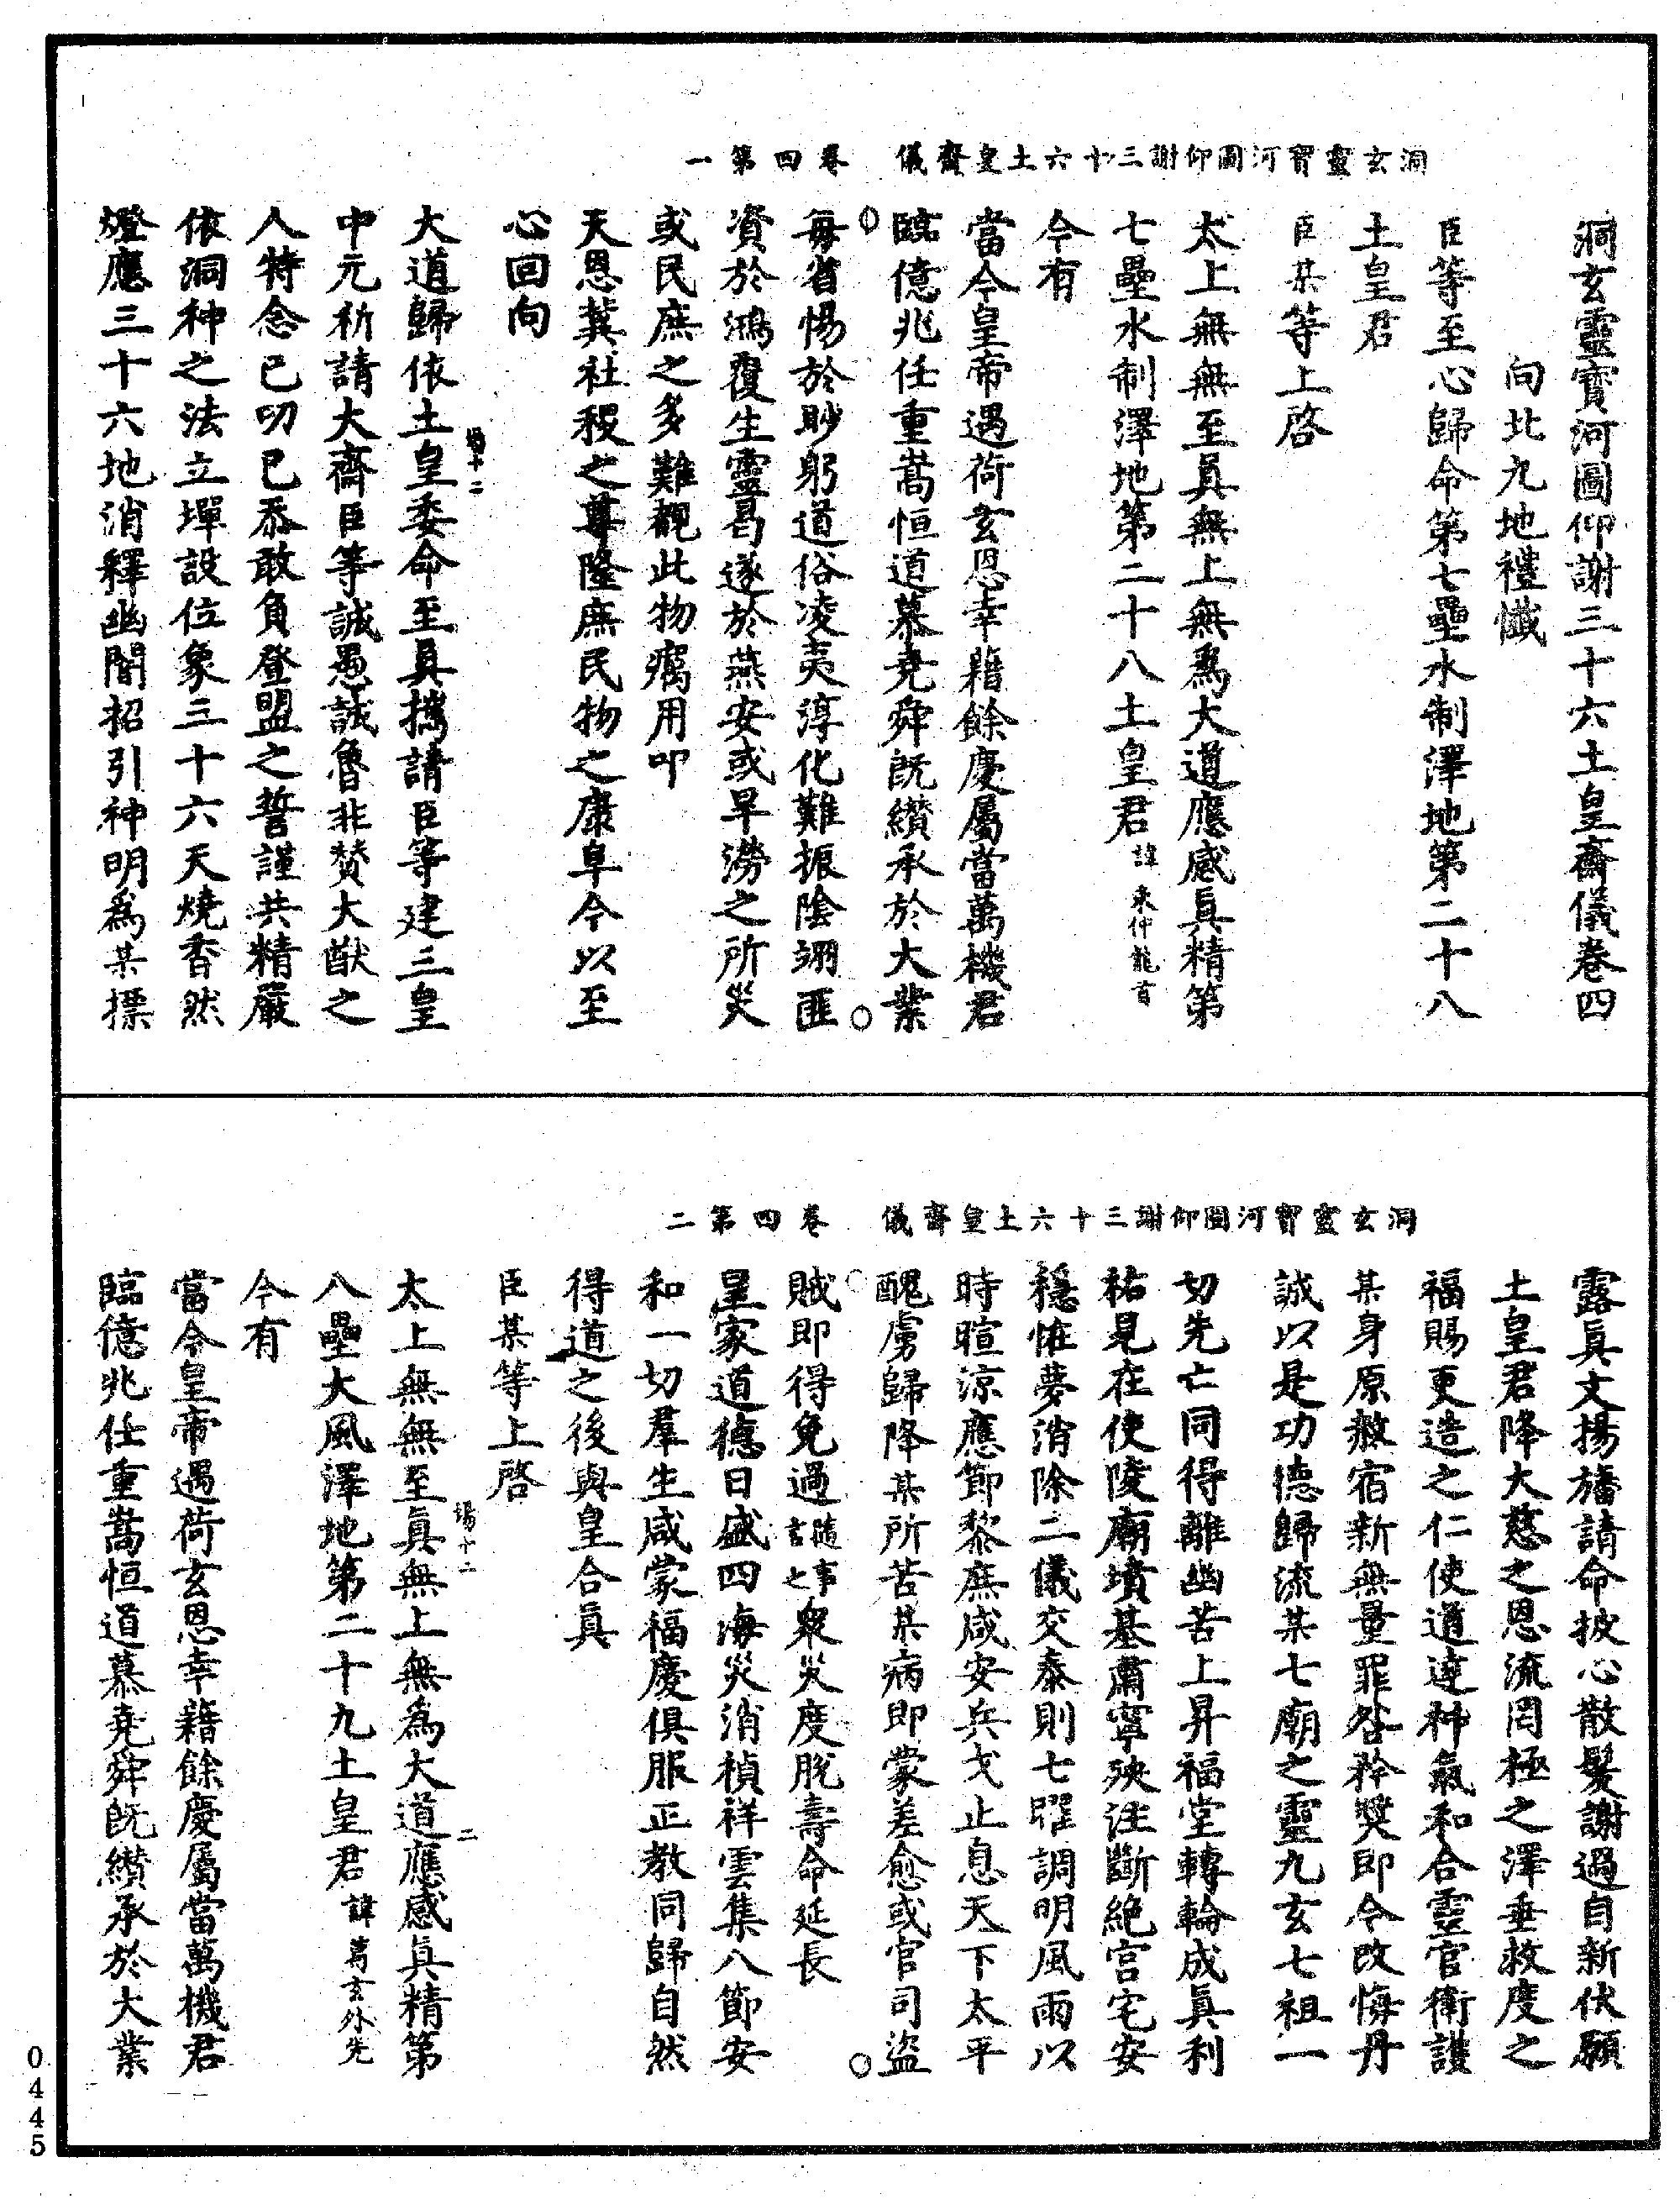 洞玄靈寶河圖仰謝三十六土皇齋儀　卷四　第一
洞玄靈寶河圖仰謝三十六土皇齋儀卷四
向北九地禮懺
臣等至心歸命第七壘水制澤地第二十八
土皇君
臣某等上啓
太上無無至眞無上無爲大道應感眞精第
七壘水制澤地第二十八土皇君諱來仲龍首
今有
當今皇帝遇荷玄恩幸藉餘慶屬當萬機君
臨億兆任重嵩恒道慕堯舜旣纘承於大業
每省惕於眇躬道俗凌夷淳化難振陰翊匪
資於鴻覆生靈曷遂於燕安或旱澇之所災
或民庶之多難覩此物癘用叩
天恩冀社稷之尊隆庶民物之康阜今以至
心回向
大道歸依土皇委命至眞攜請臣等建三皇
中元祈請大齋臣等誠愚誠魯非贊大猷之
人特念已叨已忝敢負登盟之誓謹共精嚴
依洞神之法立墠設位象三十六天燒香然
燈應三十六地消釋幽闇招引神明爲某摽
洞玄靈寶河圖仰謝三十六土皇齋儀　卷四　第二
露眞文揚旛請命披心散髮謝過自新伏願
土皇君降大慈之恩流罔極之澤垂救度之
福賜更造之仁使道達神氣和合靈官衛護
某身原赦宿新無量罪咎矜奬即今改悔丹
誠以是功德歸流某七廟之靈九玄七祖一
切先亡同得離幽苦上昇福堂轉輪成眞利
祐見在使陵廟墳基肅寧殃注斷絕宮宅安
穩惟夢消除二儀交泰則七曜調明風雨以
時暄涼應節黎庶咸安兵戈止息天下太平
醜虜歸降某所苦某病即蒙差愈或官司盜
賊即得免過隨事言之衆災度脫壽命延長
皇家道德日盛四海災消禎祥雲集八節安
和一切羣生咸蒙福慶俱服正教同歸自然
得道之後與皇合眞
臣某等上啓
太上無無至眞無上無爲大道應感眞精第
八壘大風澤地第二十九土皇君諱葛玄外先
今有
當今皇帝遇荷玄恩幸藉餘慶屬當萬機君
臨億兆任重嵩恒道慕堯舜旣纘承於大業
0445